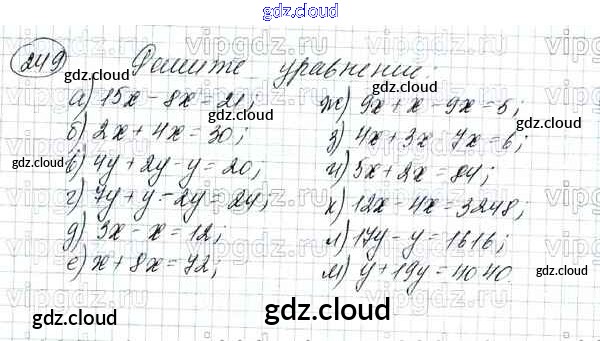 gdz.cloud
gdz.cloud
249 Решите уравнения:
а) 15x - 8x = 21;
б) 2x + 4x = 30;
в) 4y + 2y - y = 20;
г) 7y + y - 2y = 24;
д) 3x - x = 12;
е) x + 8x = 72;
ж) 9x + x - 9x = 5;
з) 4x + 3x 7x = 6;
и) 5x + 2x = 84;
к) 12x - 4x = 3248;
л) 17y - y = 1616;
м) y + 19y = 4040.
gdz.cloud
gdz.cloud
gdz.cloud
gdz.cloud
gdz.cloud
gdz.cloud
gdz.cloud
gdz.cloud
gdz.cloud